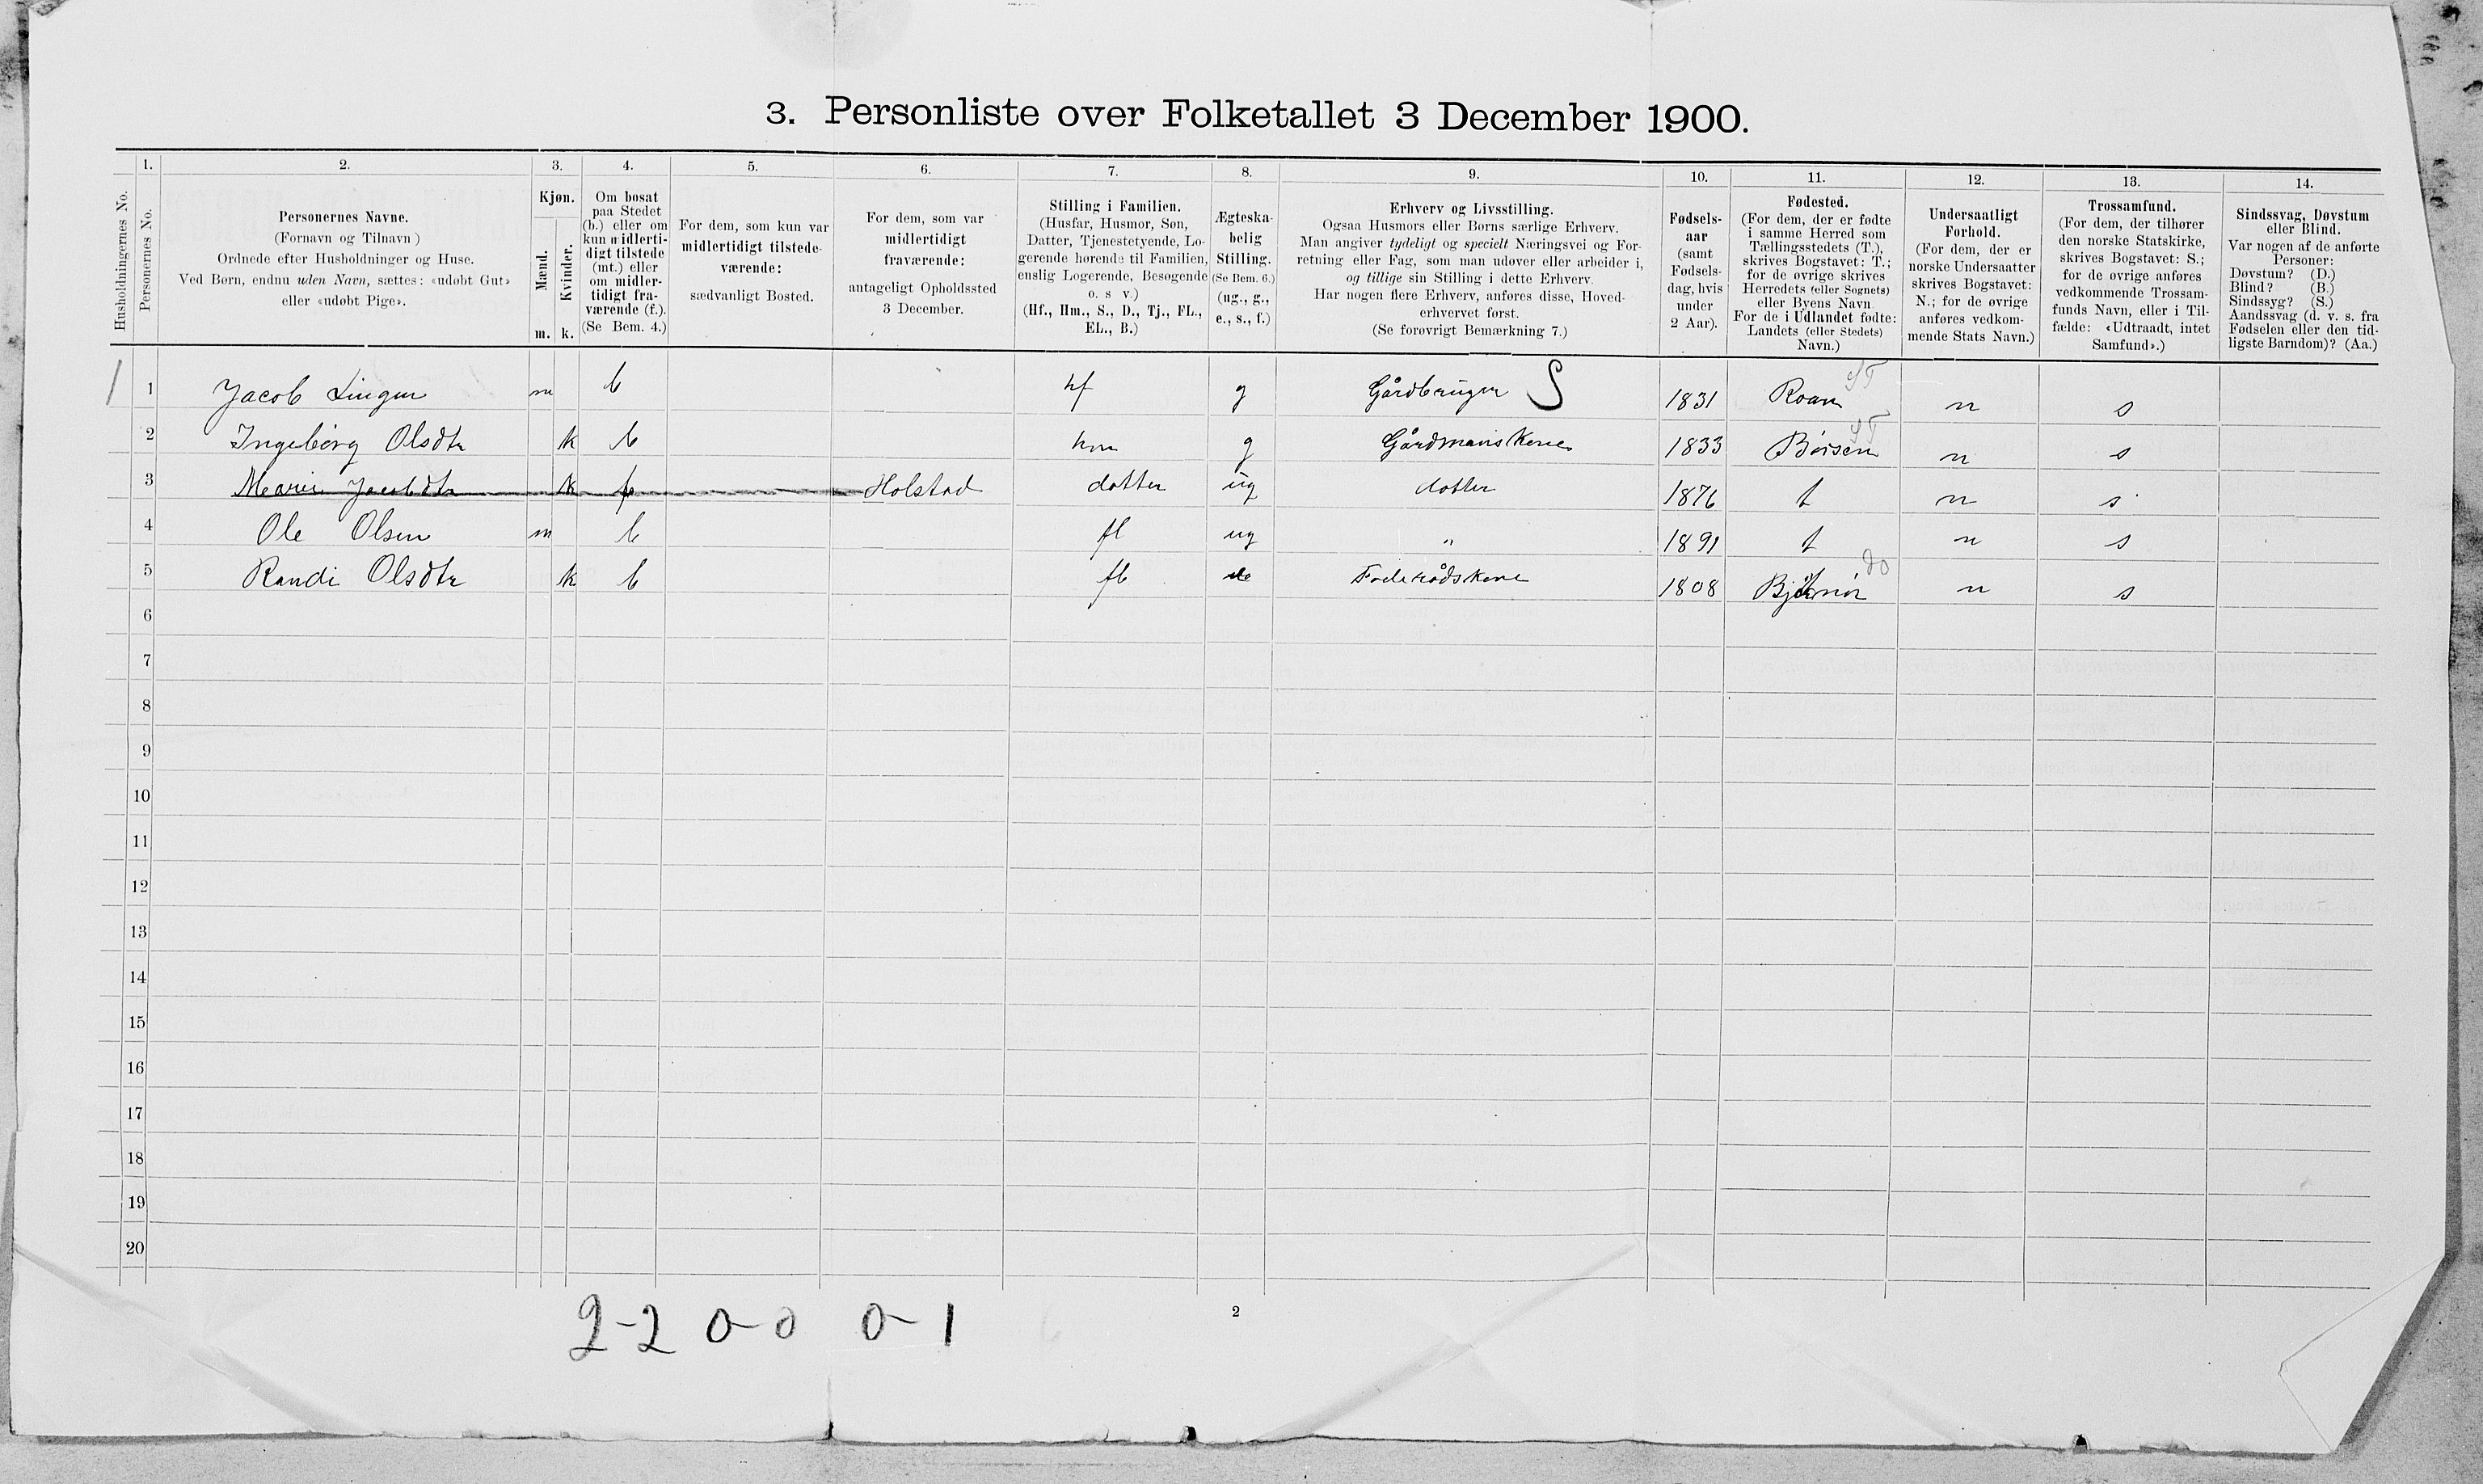 3. Personliste over Folketallet 3 December 1900.
1. 2. 3. 4. 5. 6. 7. 8. 9. 10. 11. 12. 13. 14.
Husholdningernes No.
Personernes No.
Personernes Navne.
(Fornavn og Tilnavn)
Ordnede efter Husholdninger og Huse.
Ved Børn, endnu uden Navn, sættes: «udøbt Gut»
eller «udøbt Pige».
Kjøn.
Mænd.
Kvinder.
m. k.
Om bosat
paa Stedet
(b.) eller om
kun midlerti-
digt tilstede
(mt.) eller
om midler-
tidigt fra-
værende (f.).
(Se Bem. 4.)
For dem, som kun var
midlertidigt tilstede-
værende:
sædvanligt Bosted.
For dem, som var
midlertidigt
fraværende:
antageligt Opholdssted
3 December.
Stilling i Familien.
(Husfar, Husmor, Søn,
Datter, Tjenestetyende, Lo-
gerende hørende til Familien,
enslig Logerende, Besøgende
o. s v.)
(Hf., Hm., S., D., Tj., FL.,
EL., B.)
Ægteska-
belig
Stilling.
(Se Bem. 6.)
(ug., g.,
e., s., f.)
Erhverv og Livsstilling.
Ogsaa Husmors eller Børns særlige Erhverv.
Man angiver tydeligt og specielt Næringsvei og For-
retning eller Fag, som man udøver eller arbeider i,
og tillige sin Stilling i dette Erhverv.
Har nogen flere Erhverv, anføres disse, Hoved-
erhvervet først.
(Se forøvrigt Bemærkning 7.)
Fødsels-
aar
(samt
Fødsels-
dag, hvis
under
2 Aar).
Fødested.
(For dem, der er fødte
i samme Herred som
Tællingsstedets (T.),
skrives Bogstavet: T.;
for de øvrige skrives
Herredets (eller Sognets)
eller Byens Navn
For de i Udlandet fødte:
Landets (eller Stedets)
Navn.)
Undersaatligt
Forhold.
(For dem, der er
norske Undersaatter
skrives Bogstavet:
N.; for de øvrige
anføres vedkom-
mende Stats Navn.)
Trossamfund.
(For dem, der tilhører
den norske Statskirke,
skrives Bogstavet: S.;
for de øvrige anføres
vedkommende Trossam-
funds Navn, eller i Til-
fælde: «Udtraadt, intet
Samfund».)
Sindssvag, Døvstum
eller Blind.
Var nogen af de anførte
Personer:
Døvstum? (D.)
Blind? (B.)
Sindssyg? (S.)
Aandssvag (d. v. s. fra
Fødselen eller den tid-
ligste Barndom)? (Aa.)
1 Jacob m b hf g Gårdbruger S 1831 Roan ST n s
2 Ingeborg Olsdtr k b hm g Gårdmanskone 1833 Børsen ST n s
3 Marie Jacobdtr k Holstad datter ug datter 1876 t n s
4 Ole Olsen m b fl ug " 1891 t n s
5 Randi Olsdtr k b fl Foderådskone 1808 Bjørnør do n s
6
7
8
9
10
11
12
13
14
15
16
17
18
19
20
2-2 0-0 0-1
2